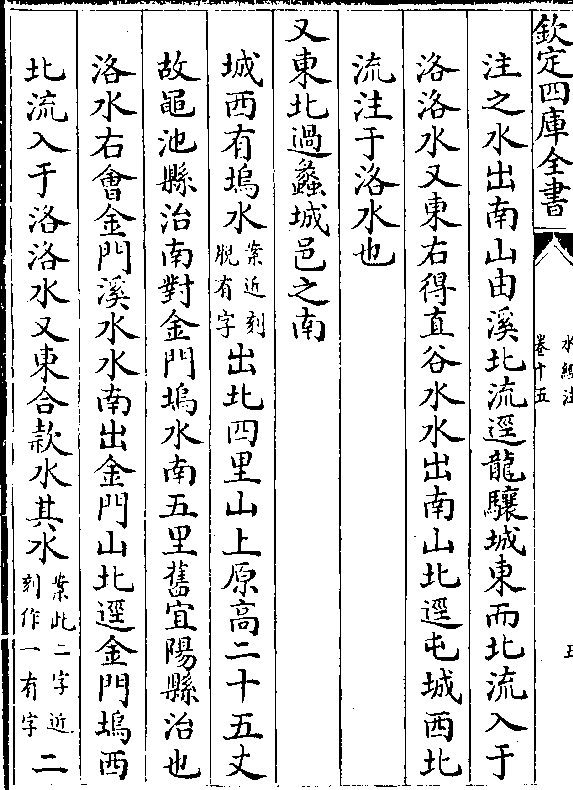 欽定四庫全書
水經注
卷十五
五
注之水出南山由溪北流逕龍驤城東而北流入于
洛洛水又東右得直谷水水出南山北逕屯城西北
流注于洛水也
又東北過蠡城邑之南
城西有塢水案近刻脫有字出北四里山上原高二十五丈
故黽池縣治南對金門塢水南五里舊宜陽縣治也
洛水右會金門溪水水南出金門山北逕金門塢西
北流入于洛洛水又東合款水其水案此二字近刻作一有字二